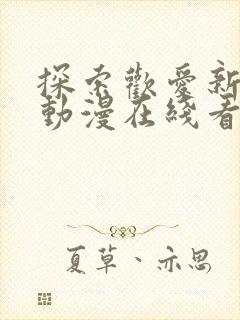 探索歡愛新
動漫在綫看
夏草、亦思